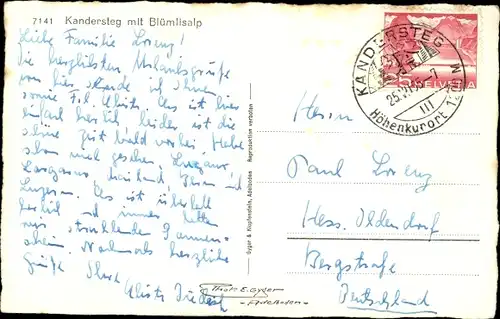 7141 Kandersteg mit Blümlisalp
Liebe Familie Lorenz!
Die herzlichsten Urlaubsgrüße
von hier sende ich Ihnen
sowie Frl. Es ist hier
einfach herrlich leider ist die
schöne Zeit bald vorbei. Habe
schon viel gesehen. Lugano,
Locarno, Mailand, Bern und
Luzern. Es ist überall
herrlich und immer hatten
wir strahlenden Sonnen-
schein. Nochmals herzliche
Grüße Ihre
Gyger & Klopfenstein, Adelboden Reproduction verboten
Photo E. Gyger
- Adelboden -
KANDERSTEG
25.9.
III
Höhenkurort
HELVETIA
Herrn
Paul Lorenz
Hess. Oldendorf
Bergstraße
Deutschland